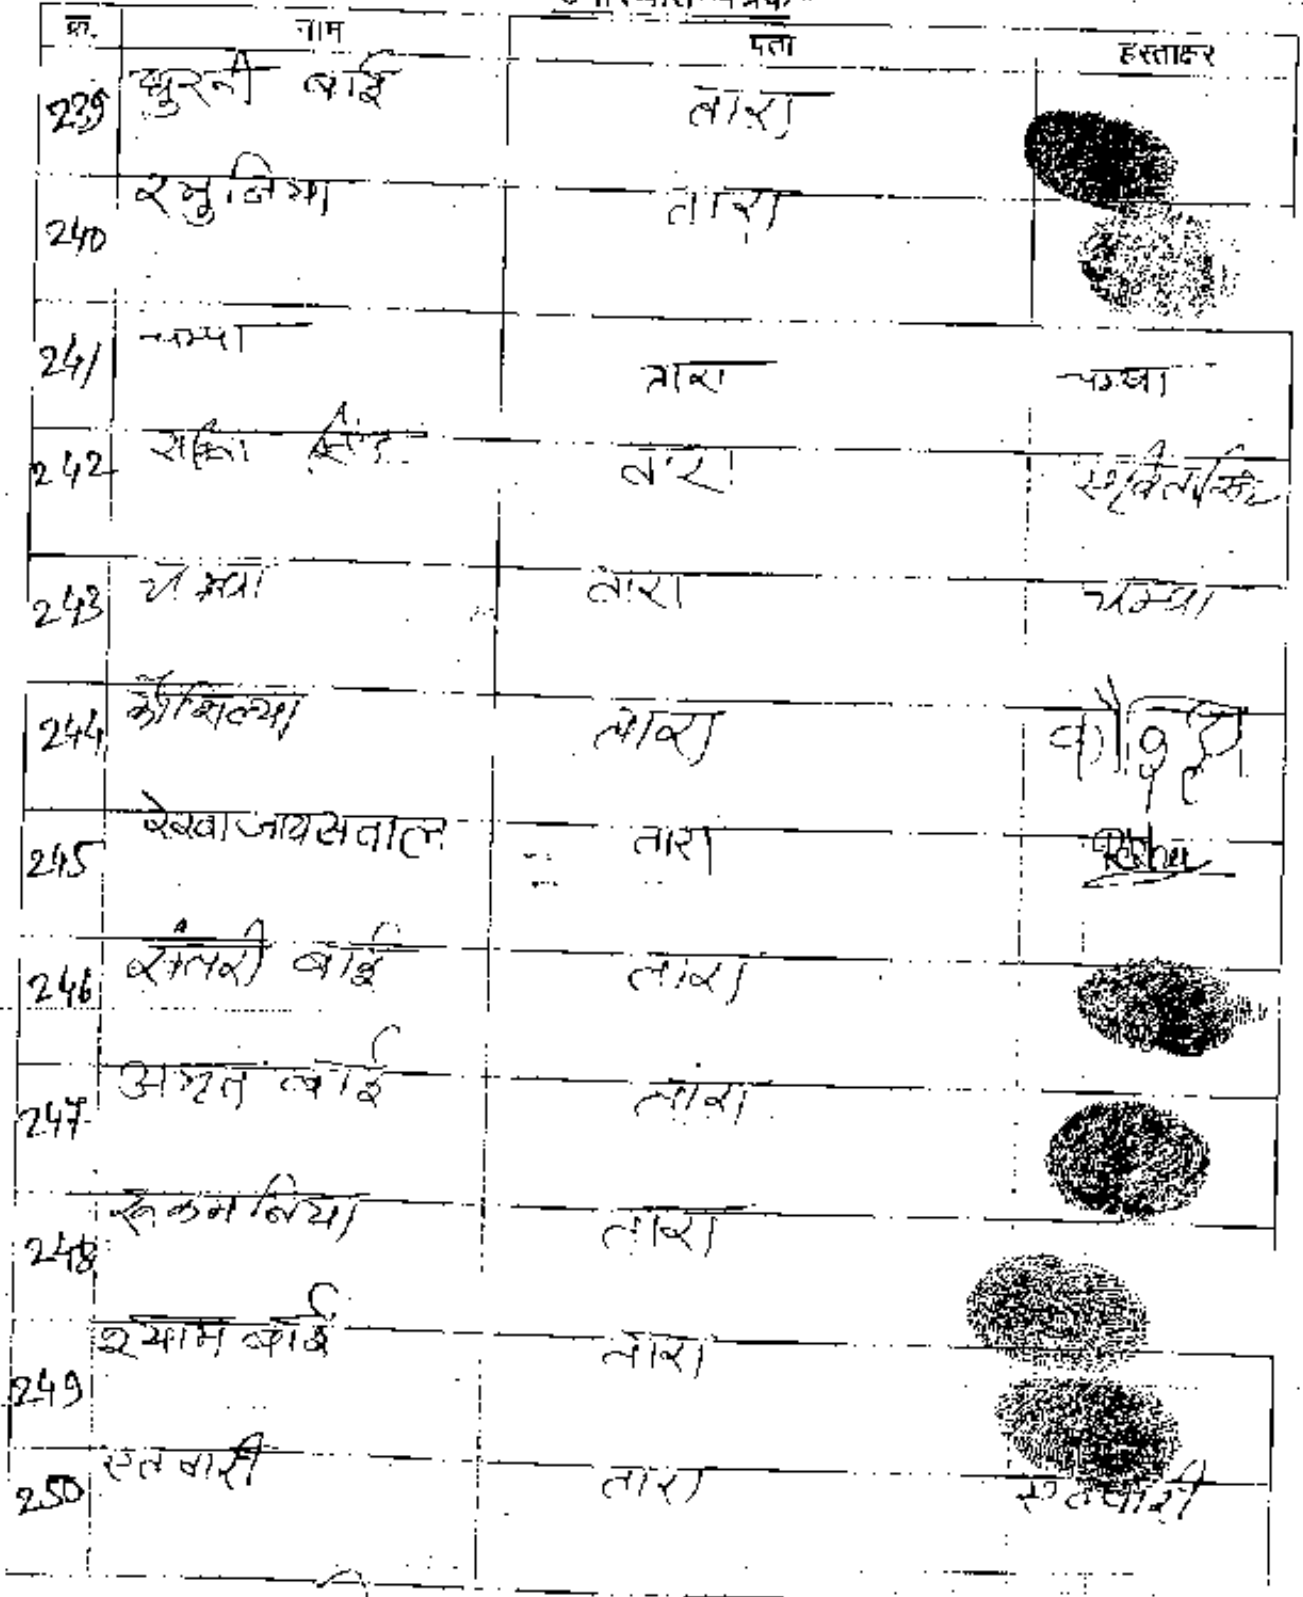 क्र. नाम पता हस्ताक्षर
239 बाई तारा
240 तारा
241 चम्पा तारा चम्पा
242 तारा
243 चम्पा तारा चम्पा
244 कौशिल्या तारा
245 रेखा जायसवाल तारा Rekha
246 संतरी बाई तारा
247 अमृत बाई तारा
248 रूकमनिया तारा
249 श्याम बाई तारा
250 एतवारी तारा एतवारी